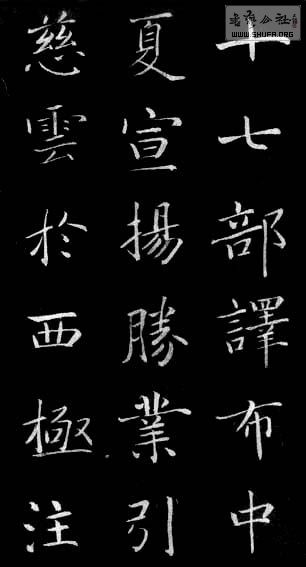 十七部譯布中
夏宣揚勝業引
慈雲於西極注
書法公社
WWW.SHUFA.ORG